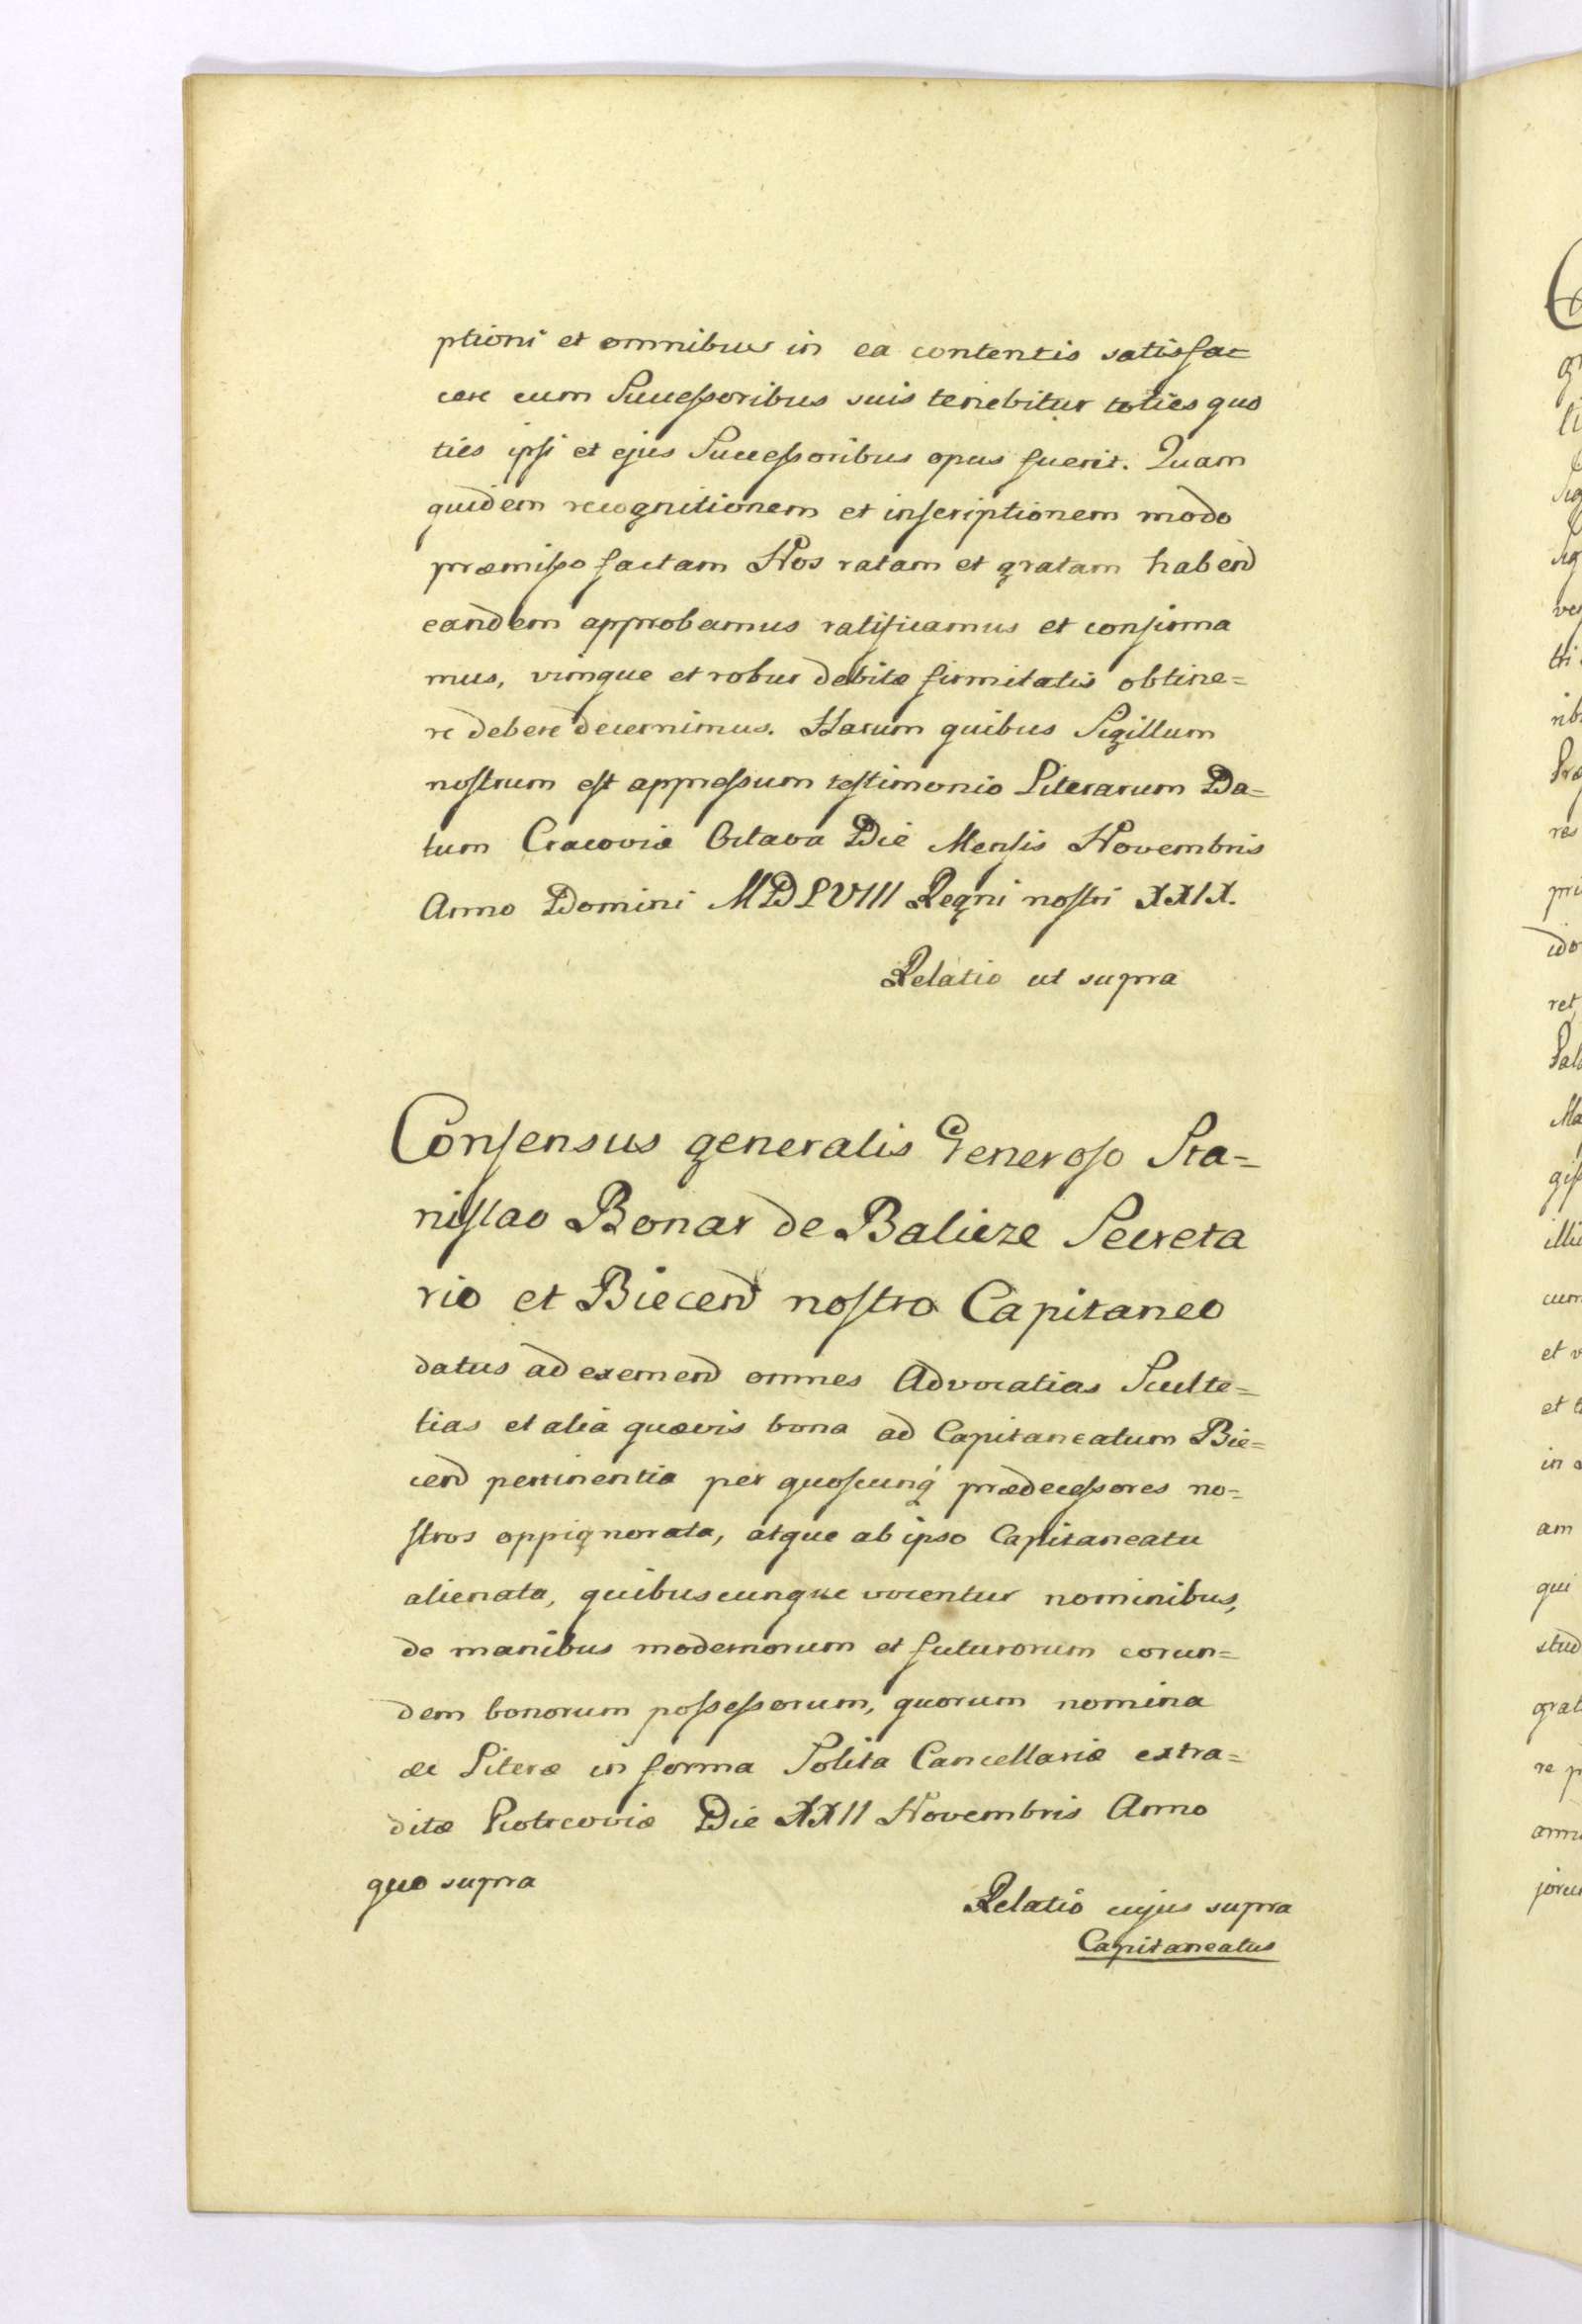 ptioni et omnibus in ea contentis satisfac
cere cum Successoribus suis tenebitur toties quo
ties ipsi et ejus Successoribus opus fuerit. Quam
quidem recognitionem et inscriptionem modo
præmisso factam Nos ratam et gratam habend
eandem approbamus ratificamus et confirma
mus, vimque et robur debitæ firmitatis obtine=
re debere decernimus. Harum quibus Sigillum
nostrum est appressum testimonio Literarum Da=
tum Cracoviæ Octava Die Mensis Novembris
Anno Domini MDLVIII Regni nostri XXIX.
Relatio ut supra
Consensus generalis Generoso Sta=
nislao Bonar de Balicze Secreta
rio et Biecen nostro Capitaneo
datus ad exemend omnes Advocatias Sculte=
tias et alia quævis bona ad Capitaneatum Bie=
cen pertinentia per quoscunq prædecessores no=
stros oppignorata, atque ab ipso Capitaneatu
alienata, quibuscunque vocentur nominibus,
de manibus modernorum et futurorum eorun=
dem bonorum possessorum, quorum nomina
etc Literæ in forma Solita Cancellariæ extra=
ditæ Piotrcoviæ Die XXII Novembris Anno
quo supra
Relatio cujus supra
Capitaneatus